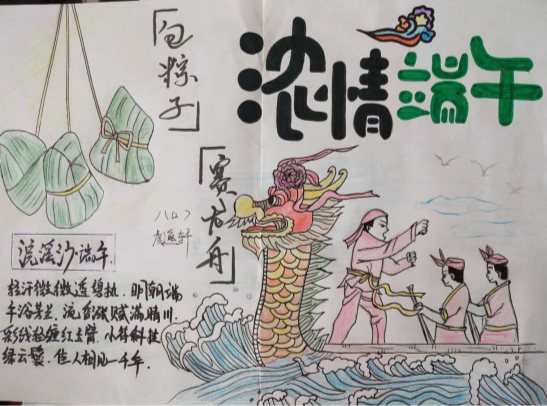 浓情端午
「包粽子」
「赛龙舟」
浣溪沙·端午
轻汗微微透碧纨.明朝端
午浴芳兰.流香涨腻满晴川.
彩线轻缠红玉臂.小符斜挂
绿云鬟.佳人相见一千年.